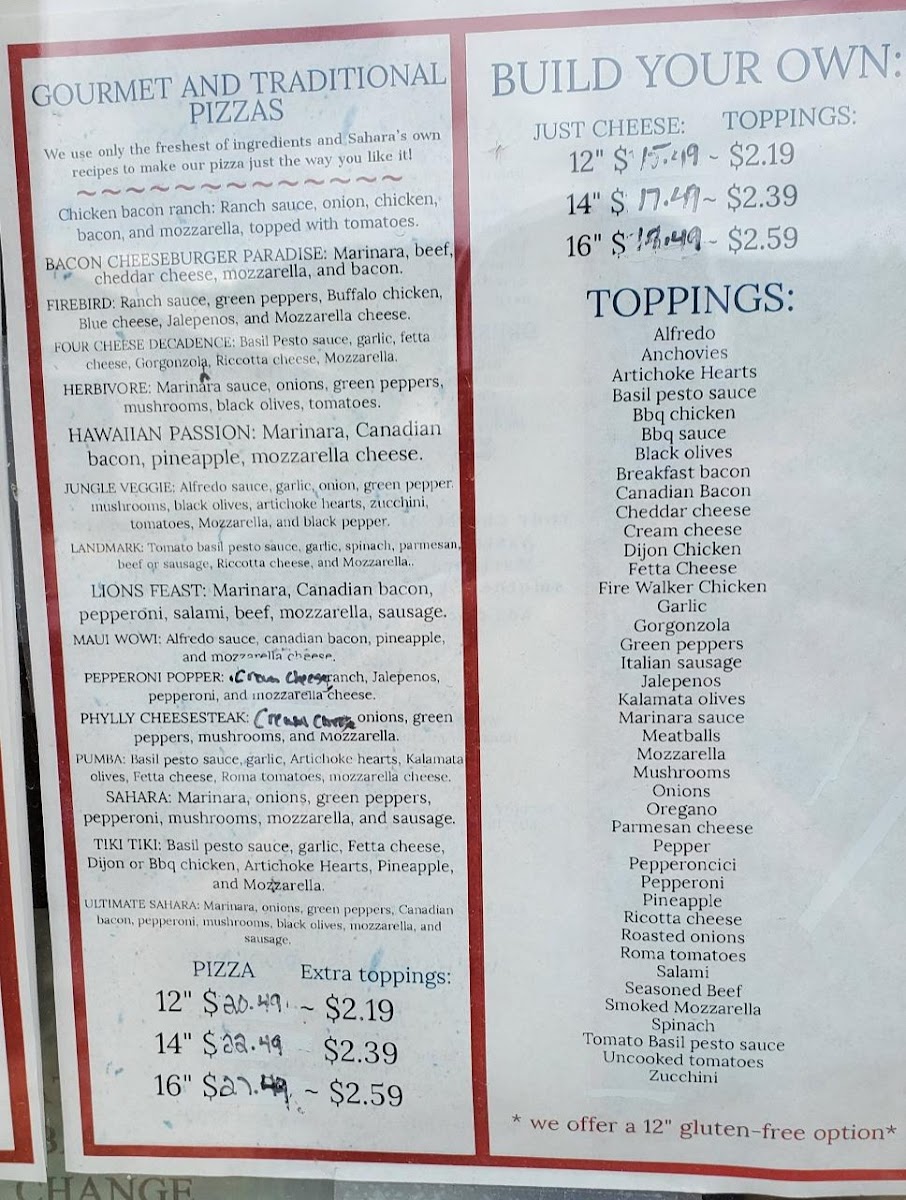 GOURMET AND TRADITIONAL
PIZZAS
We use only the freshest of ingredients and Sahara's own
recipes to make our pizza just the way you like it!
Chicken bacon ranch: Ranch sauce, onion, chicken,
bacon, and mozzarella, topped with tomatoes.
BACON CHEESEBURGER PARADISE: Marinara, beef,
cheddar cheese, mozzarella, and bacon.
FIREBIRD: Ranch sauce, green peppers, Buffalo chicken,
Blue cheese, Jalepenos, and Mozzarella cheese.
FOUR CHEESE DECADENCE: Basil Pesto sauce, garlic, fetta
cheese, Gorgonzola, Riccotta cheese, Mozzarella.
HERBIVORE: Marinara sauce, onions, green peppers,
mushrooms, black olives, tomatoes.
HAWAIIAN PASSION: Marinara, Canadian
bacon, pineapple, mozzarella cheese.
JUNGLE VEGGIE: Alfredo sauce, garlic, onion, green pepper,
mushrooms, black olives, artichoke hearts, zucchini,
tomatoes, Mozzarella, and black pepper.
LANDMARK: Tomato basil pesto sauce, garlic, spinach, parmesan,
beef or sausage, Riccotta cheese, and Mozzarella..
LIONS FEAST: Marinara, Canadian bacon,
pepperoni, salami, beef, mozzarella, sausage.
MAUI WOWI: Alfredo sauce, canadian bacon, pineapple,
and mozzarella cheese.
PEPPERONI POPPER: Cream cheese ranch, Jalepenos,
pepperoni, and mozzarella cheese.
PHYLLY CHEESESTEAK: Cream cheese onions, green
peppers, mushrooms, and Mozzarella.
PUMBA: Basil pesto sauce, garlic, Artichoke hearts, Kalamata
olives, Fetta cheese, Roma tomatoes, mozzarella cheese.
SAHARA: Marinara, onions, green peppers,
pepperoni, mushrooms, mozzarella, and sausage.
TIKI TIKI: Basil pesto sauce, garlic, Fetta cheese,
Dijon or Bbq chicken, Artichoke Hearts, Pineapple,
and Mozzarella.
ULTIMATE SAHARA: Marinara, onions, green peppers, Canadian
bacon, pepperoni, mushrooms, black olives, mozzarella, and
sausage.
PIZZA Extra toppings:
12" $20.49 ~ $2.19
14" $22.49 $2.39
16" $27.49 ~ $2.59
BUILD YOUR OWN:
JUST CHEESE: TOPPINGS:
12" $15.49 ~ $2.19
14" $17.49 ~ $2.39
16" $ ~ $2.59
TOPPINGS:
Alfredo
Anchovies
Artichoke Hearts
Basil pesto sauce
Bbq chicken
Bbq sauce
Black olives
Breakfast bacon
Canadian Bacon
Cheddar cheese
Cream cheese
Dijon Chicken
Fetta Cheese
Fire Walker Chicken
Garlic
Gorgonzola
Green peppers
Italian sausage
Jalepenos
Kalamata olives
Marinara sauce
Meatballs
Mozzarella
Mushrooms
Onions
Oregano
Parmesan cheese
Pepper
Pepperoncici
Pepperoni
Pineapple
Ricotta cheese
Roasted onions
Roma tomatoes
Salami
Seasoned Beef
Smoked Mozzarella
Spinach
Tomato Basil pesto sauce
Uncooked tomatoes
Zucchini
* we offer a 12" gluten-free option*
CHANGE